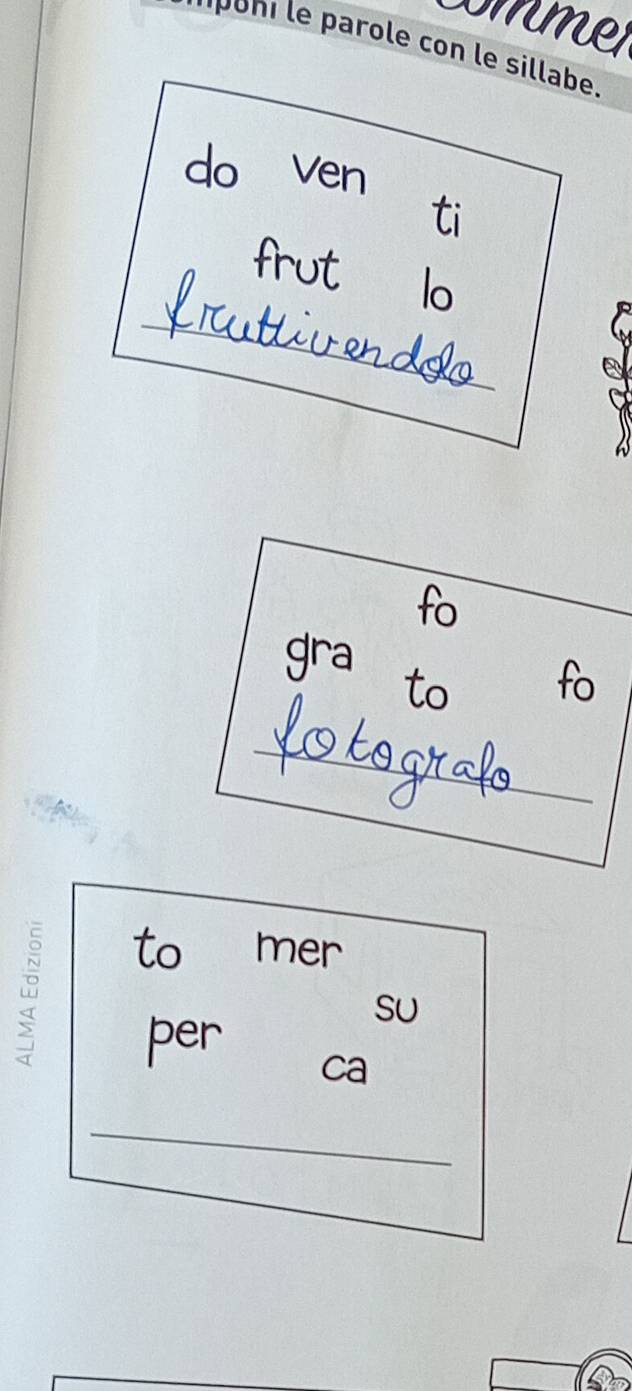 le parole con le sillabe.
do ven
ti
frut lo
fruttivendolo
fo
gra to fo
fotografo
to mer
su
per
ca
ALMA Edizioni